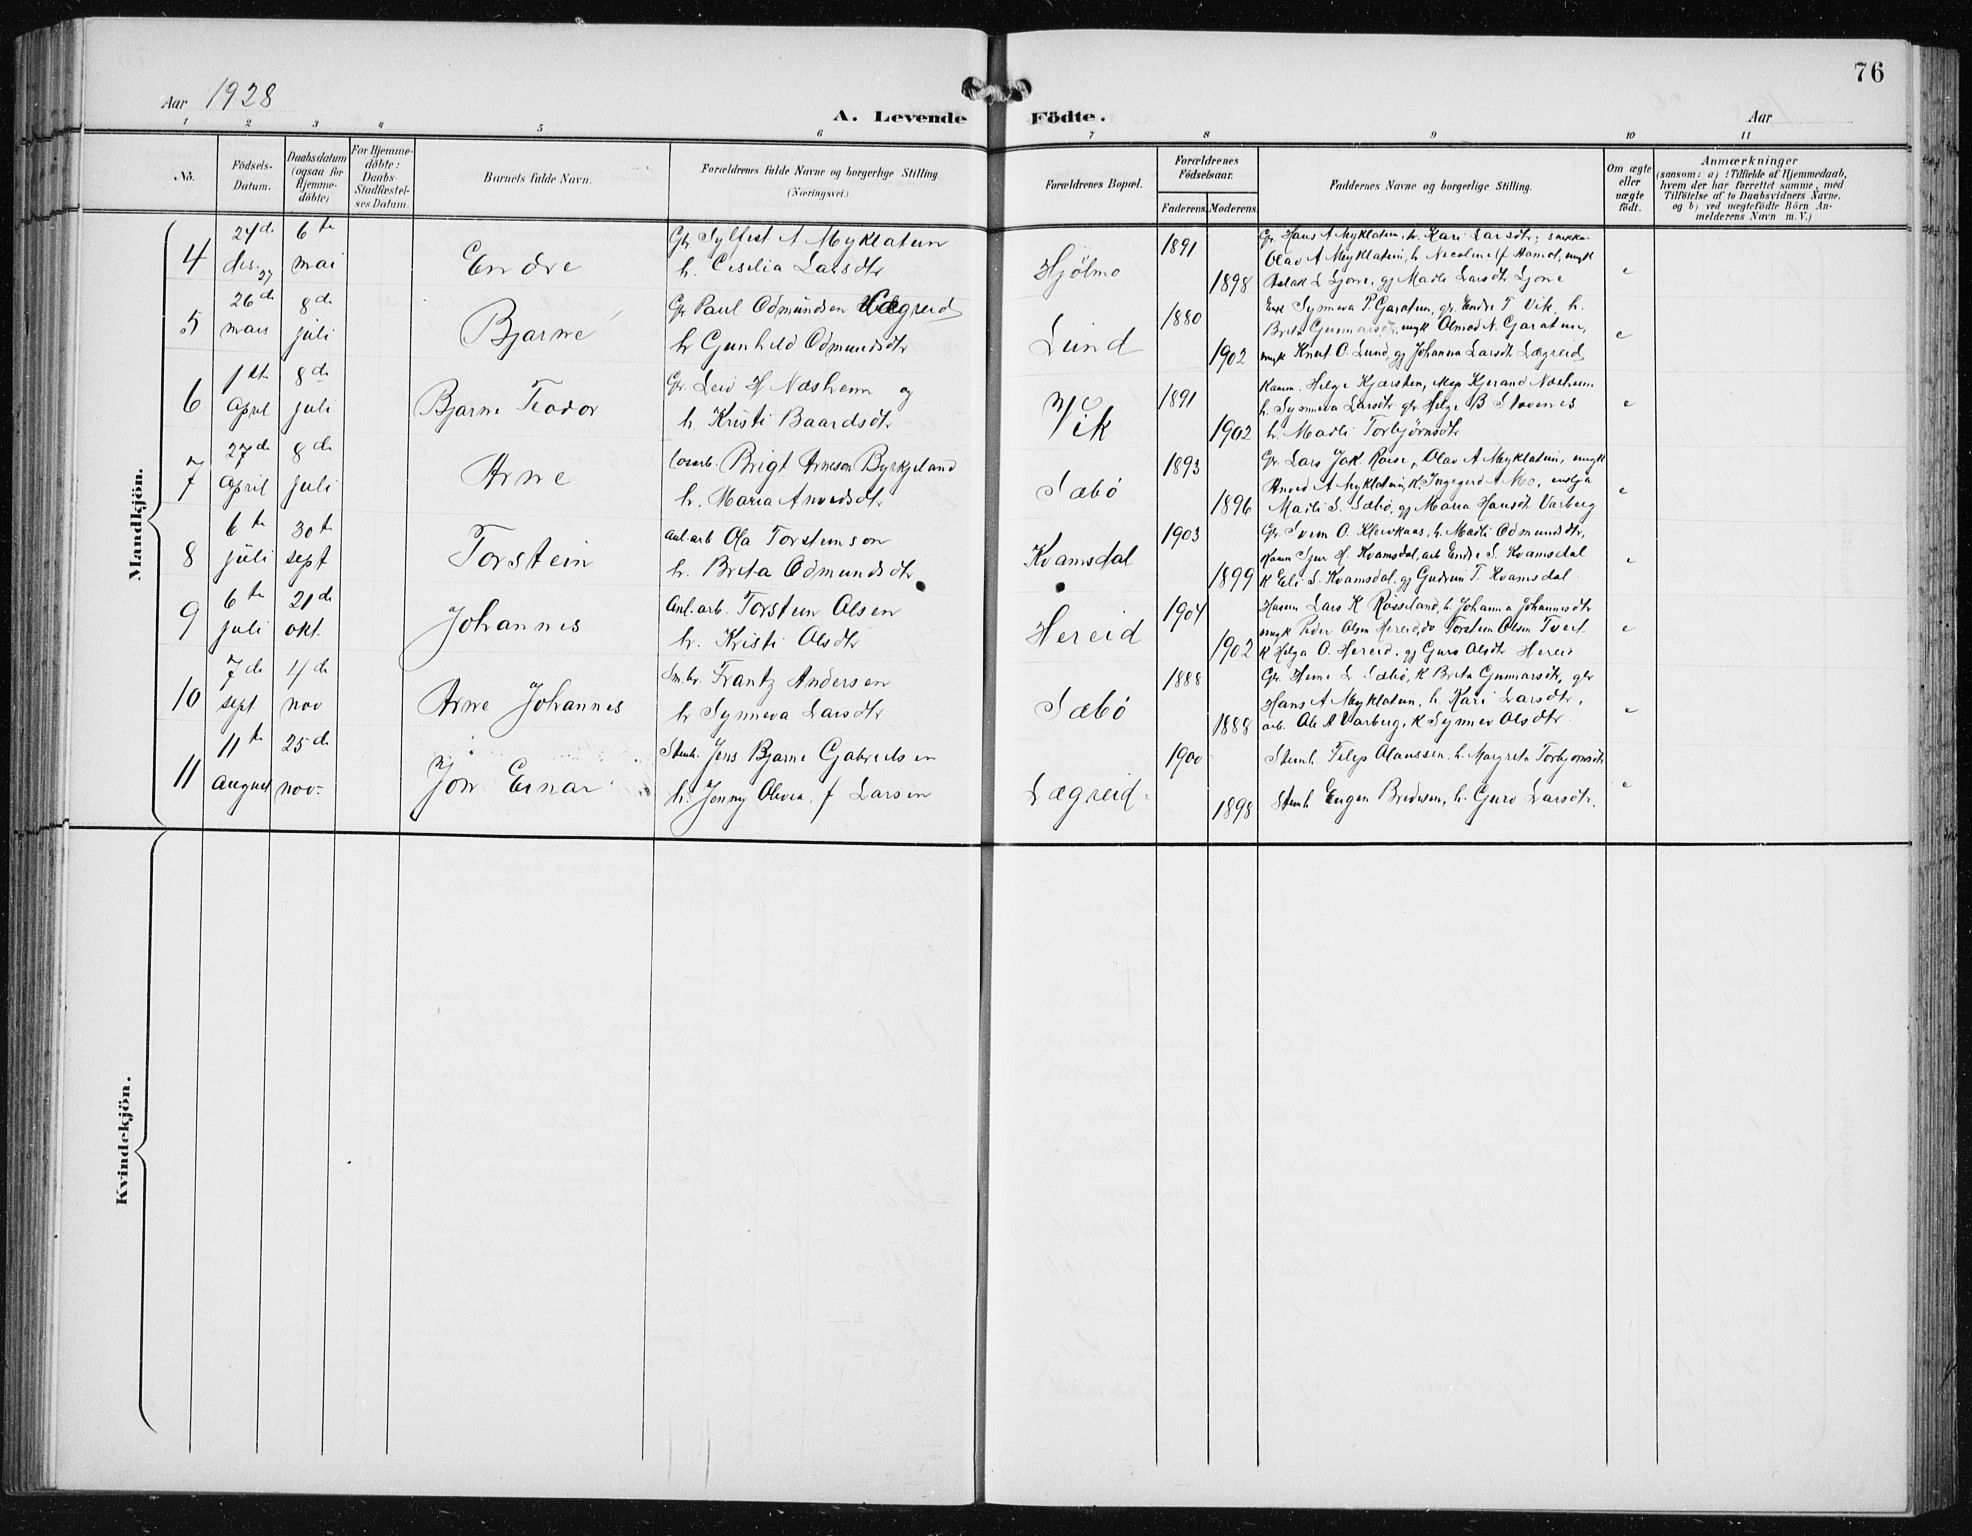 76
Aar 1928
A. Levende Födte.
Aar
1 2 3 4 5 6 7 8 9 10 11
Nö.
Födsels-
Datum.
Daabsdatum
(ogsaa for
Hjemme-
döbte)
For Hjemme-
döbte:
Daabs-
Stadfæstel-
ses Datum.
Barnets fulde Navn.
Forældrenes fulde Navne og borgerlige Stilling.
(Næringsvei.)
Forældrenes Bopæl.
Forældrenes
Födselsaar.
Faderens. Moderens.
Faddernes Navne og borgerlige Stilling.
Om ægte
eller
uægte
födt.
Anmærkninger
(saasom: a) i Tilfælde af Hjemmedaab,
hvem der har forrettet samme, med
Tilföielse af to Daabsvidners Navne.
og b) ved uægtefödte Börn An-
melderens Navn m. V.)
Mandkjön.
4
24 de
des. 27
6 te
mai
Endre
Gbr Sylfest A Myklatun
h. Cesilia Larsdtr
Hjölmo
1891
1898
Gbr. Hans A Myklatun, h. Kari Larsdtr; snekker
Olav A Myklatun, h Nicoline f Hamot, ungk
Aslak L Ljone, gj Madli Larsdtr Ljone
e
5
26 de
mars
8 de
juli
Bjarne
Gbr Paul Odmundsen Lægreid
h Gunhild Odmundsdtr
Lund
1880
1902
Enke Synneva P. Garatun, gbr. Endre T Vik, h.
Brita Gunnarsdtr, ungk Olmod N. Garatun,
ungk Knut O. Lund, gj Johanna Larsdtr Lægreid
e
6
1 ste
April
8 de
juli
Bjarne Teodor
Gbr. Leiv H Næsheim og
h Kristi Baardsdtr
Vik
1891
1902
Kaarm. Helge Kjærsten, Kjerand Næsheim
h. Synneva Larsdtr gbr Helge B Stovenes
h. Madli Torbjørnsdtr
e
7
27 de
April
8 de
juli
Arne
losarb. Brigt Arneson Byrkjeland
h. Maria Anvedsdtr
Sæbö
1893
1896
Gbr. Lars Jak Røise, Olav A Myklatun, ungk
Anved A Myklatun, k. Ingegerd A Mo,
Madli S. Sæbø, gj Maria Hansdtr Varberg
e
8
6 te
juli
30 te
sept
Torstein
anl.arb Ola Torsteinson
h. Brita Odmundsdtr
Kvamsdal
1903
1899
Gbr Svein O. Kleivkaas, h. Madli Odmundsdtr,
Kaarm Sjur H. Kvamsdal, arb Endre S. Kvamsdal
k Eli S. Kvamsdal, gj Gudrun T. Kvamsdal
e
9
6 te
juli
21 de
okt.
Johannes
Anl. arb. Torstein Olsen
h. Kristi Olsdtr
Hereid
1904
1902
Husm Lars K Røiseland, h Johanna Johannesdtr
ungk Peder Olsen Hereid, do Torstein Olsen Tveit
k Helga O. Hereid, gj Guro Olsdtr Hereid
e
10
7 de
sept
4 de
nov
Arne Johannes
Sm.br. Frantz Andersen
h Synneva Larsdtr
Sæbö
1888
1888
Gbr. Heine L Sæbö, k Brita Gunnarsdtr, gbr
Hans A Myklatun, h. Kari Larsdtr,
arb. Ole A Varberg, k Synnev Olsdtr.
e
11
11 te
August
25 de
nov.
Jon Einar
Stenh. Jens Bjarne Gabrielsen
h. Jenny Olivia f Larsen
Lægreid
1900
1898
Stenh Filip Olaussen, h. Margreta Torbjørnsdtr
Stenh Eugen Bredesen, h. Guro Larsdtr.
e
Kvindekjön.